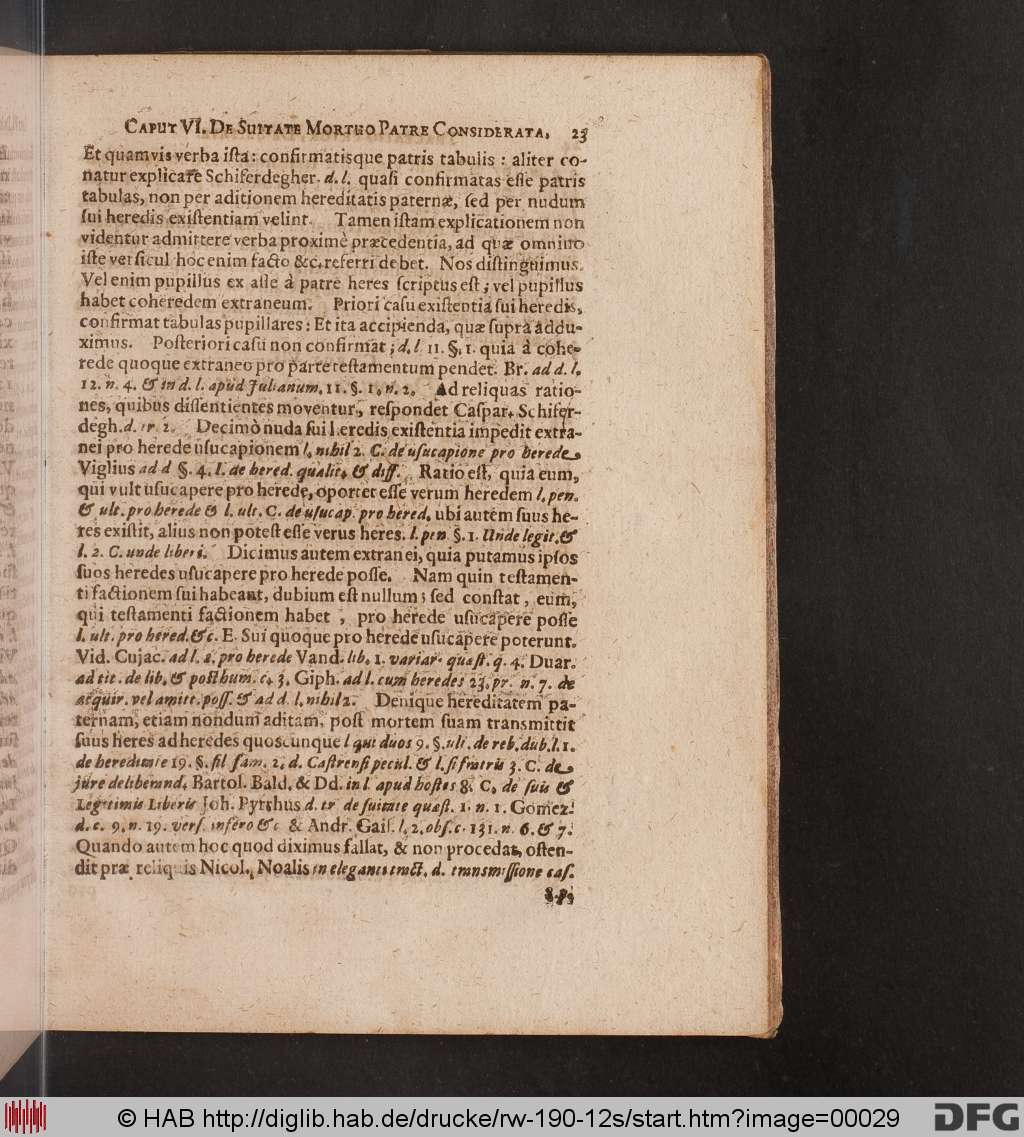 CAPUT VI. DE SUITATE MORTUO PATRE CONSIDERATA. 23
Et quamvis verba ista: confirmatisque patris tabulis: aliter co-
natur explicare Schiferdegher. d. l. quasi confirmatas esse patris
tabulas, non per aditionem hereditatis paternæ, sed per nudum
sui heredis existentiam velint. Tamen istam explicationem non
videntur admittere verba proximè præcedentia, ad quæ omnino
iste versicul hoc enim facto &c. referri debet. Nos distinguimus.
Vel enim pupillus ex asse à patre heres scriptus est; vel pupillus
habet coheredem extraneum. Priori casu existentia sui heredis,
confirmat tabulas pupillares: Et ita accipienda, quæ suprà addu-
ximus. Posteriori casu non confirmat; d. l 11. §. 1. quia à cohe-
rede quoque extraneo pro parte testamentum pendet. Br. ad d. l.
12. n. 4. & in d. l. apud Julianum. 11. §. 1. n. 2. Ad reliquas ratio-
nes, quibus dissentientes moventur, respondet Caspar. Schifer-
degh. d. tr. 2. Decimò nuda sui heredis existentia impedit extra-
nei pro herede usucapionem l. nihil 2. C. de usucapione pro herede.
Viglius ad d §. 4. l. de hered. qualit. & diff. Ratio est, quia eum,
qui vult usucapere pro herede, oportet esse verum heredem l. pen.
& ult. pro herede & l. ult. C. de usucap. pro hered. ubi autem suus he-
res existit, alius non potest esse verus heres. l. pen §. 1. Unde legit. &
l. 2. C. unde liberi. Dicimus autem extranei, quia putamus ipsos
suos heredes usucapere pro herede posse. Nam quin testamen-
ti factionem sui habeant, dubium est nullum; sed constat, eum,
qui testamenti factionem habet, pro herede usucapere posse
l. ult. pro hered. &c. E. Sui quoque pro herede usucapere poterunt.
Vid. Cujac. ad l. 2. pro herede Vand. lib. 1. variar. quæst. q. 4. Duar.
ad tit. de lib. & posthum. c. 3. Giph. ad l. cum heredes 23. pr. n. 7. de
acquir. vel amitt. poss. & ad d. l. nihil 2. Denique hereditatem pa-
ternam, etiam nondum aditam, post mortem suam transmittit
suus heres ad heredes quoscunque l qui duos 9. §. ult. de reb. dub. l. 1.
de hereditate 19. §. fil fam. 2. d. Castrensi pecul. & l. si fratris 3. C. de
jure deliberand. Bartol. Bald. & Dd. in l. apud hostes 8. C. de suis &
Legitimis Liberis Joh. Pyrrhus d. tr de suitate quæst. 1. n. 1. Gomez.
d. c. 9. n. 19. vers. infero &c & Andr. Gail. l. 2. obs. c. 131. n. 6. & 7.
Quando autem hoc quod diximus fallat, & non procedat, osten-
dit præ reliquis Nicol. Noalis in eleganti tract. d. transmissione cas.
© HAB http://diglib.hab.de/drucke/rw-190-12s/start.htm?image=00029
DFG